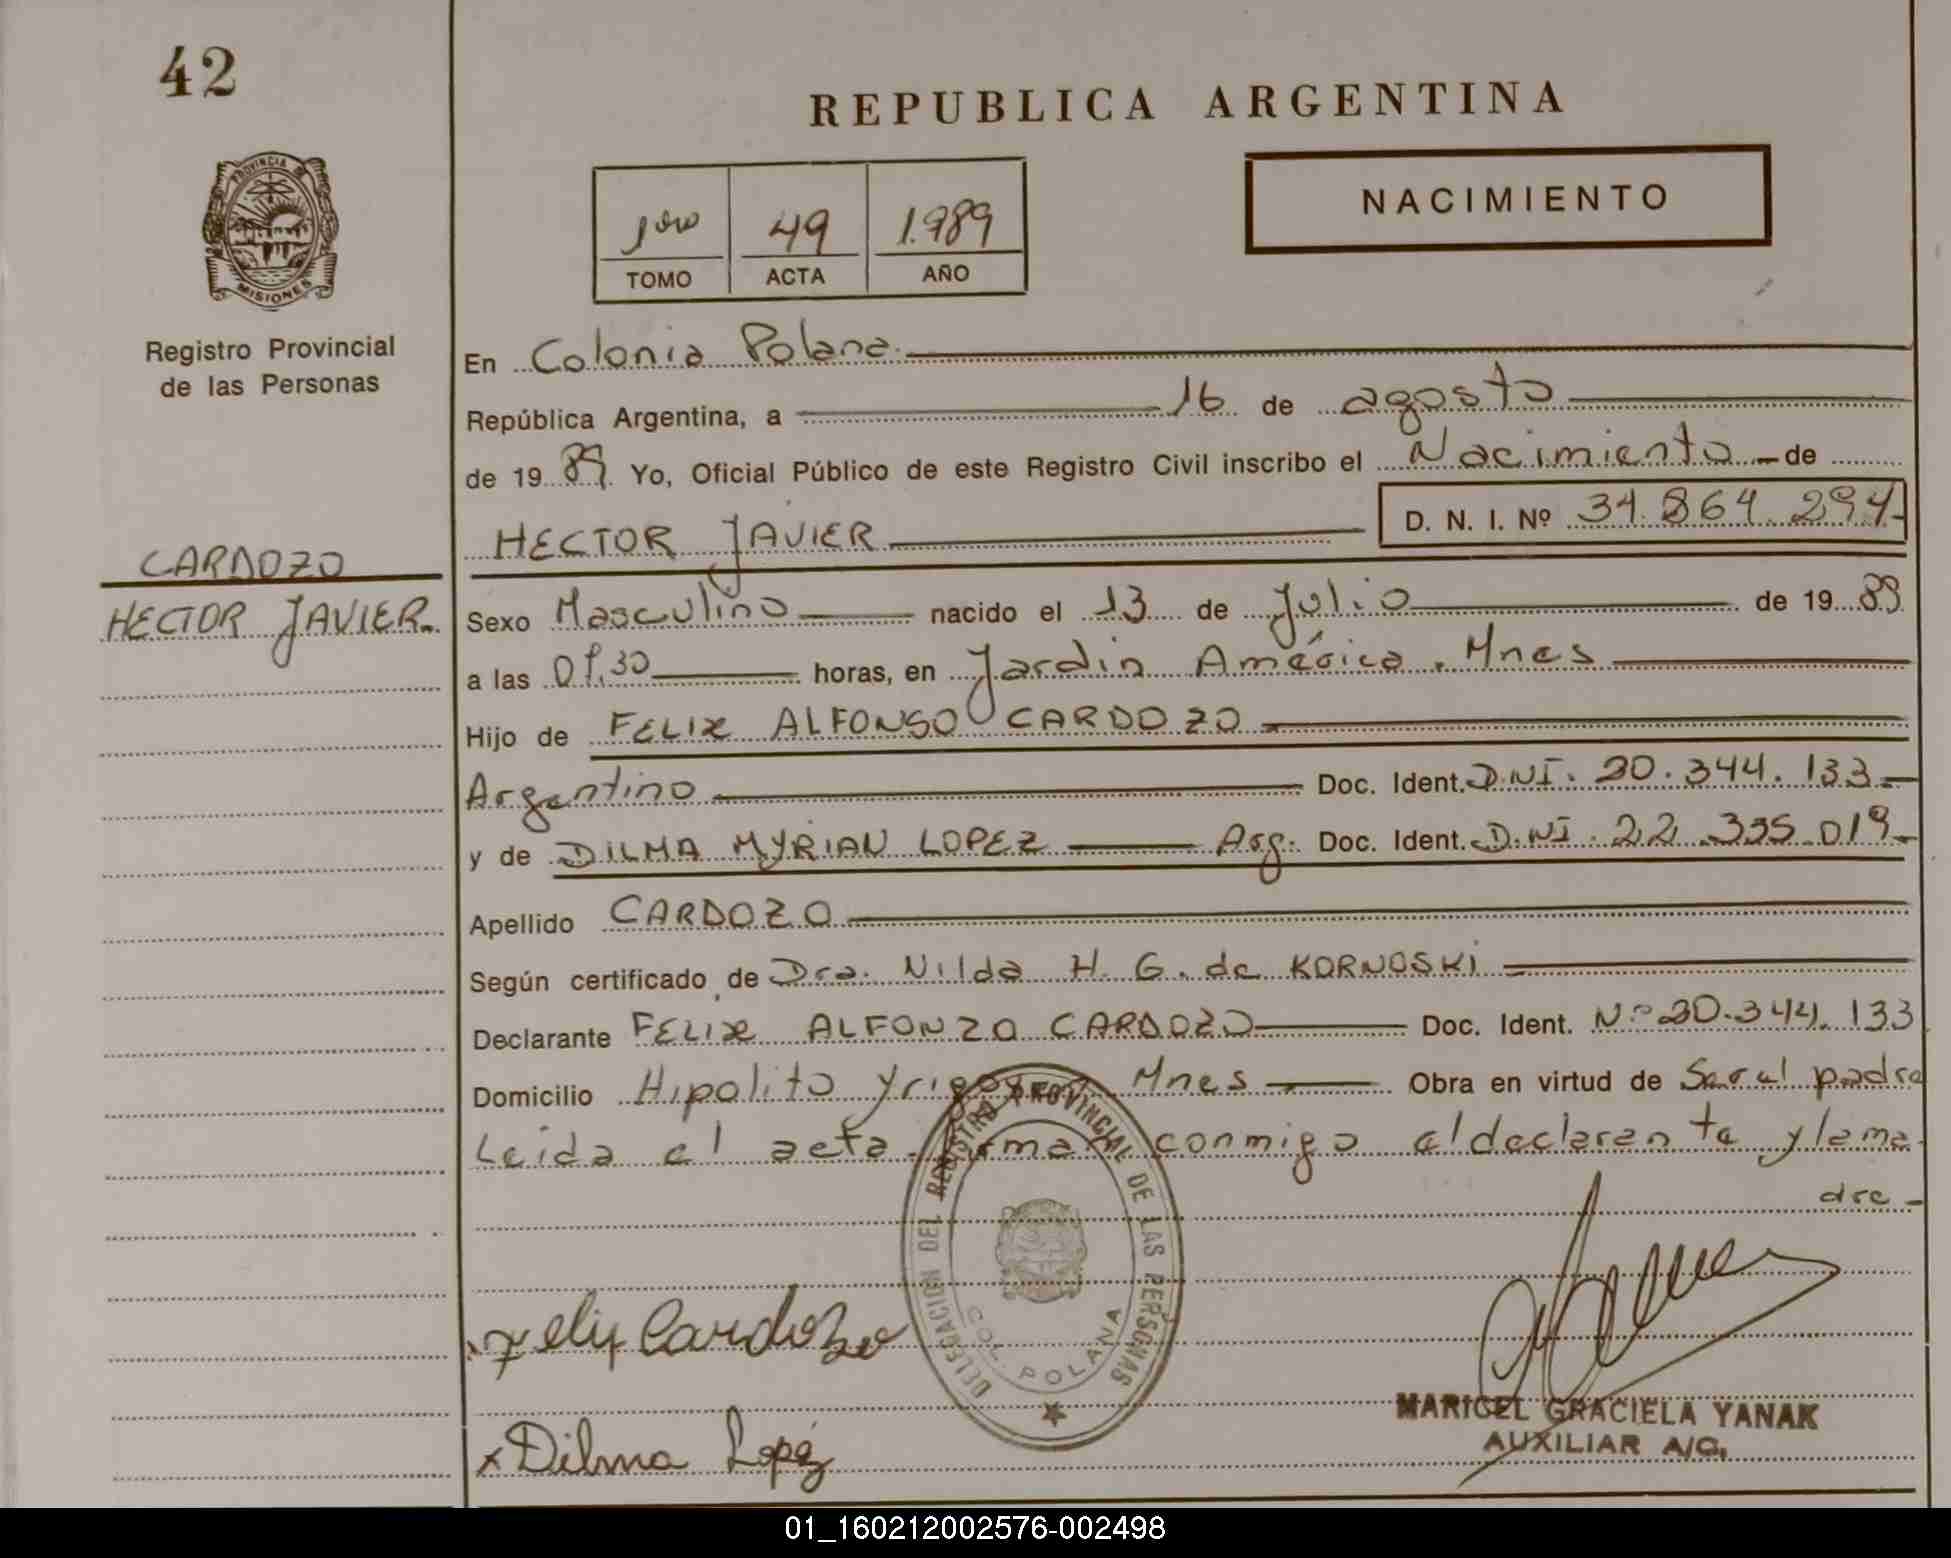 42
REPUBLICA ARGENTINA
NACIMIENTO
1ero 49 1.989
TOMO ACTA AÑO
PROVINCIA DE
MISIONES
Registro Provincial
de las Personas
CARDOZO
HECTOR JAVIER.
En Colonia Polana.
República Argentina, a 16 de agosto
de 19 89. Yo, Oficial Público de este Registro Civil inscribo el Nacimiento de
HECTOR JAVIER D. N. I. Nº 34.864.294
Sexo Masculino nacido el 13 de Julio de 19 89
a las 01,30 horas, en Jardin América. Mnes
Hijo de FELIX ALFONSO CARDOZO
Argentino Doc. Ident. D.NI. 20.344.133
y de DILMA MYRIAN LOPEZ Arg. Doc. Ident. D.NI. 22.335.019
Apellido CARDOZO
Según certificado de Dra. Nilda H. G. de KORNOSKI
Declarante FELIX ALFONZO CARDOZO Doc. Ident. Nº 20.344.133
Domicilio Hipolito Yrigoyen Mnes Obra en virtud de Ser el padre
Leida el acta firman conmigo el declarante y la ma
dre
DELEGACION DEL REGISTRO PROVINCIAL DE LAS PERSONAS
COL. POLANA
Felix Cardozo
x Dilma Lopéz
MARICEL GRACIELA YANAK
AUXILIAR A/C.
01_160212002576-002498